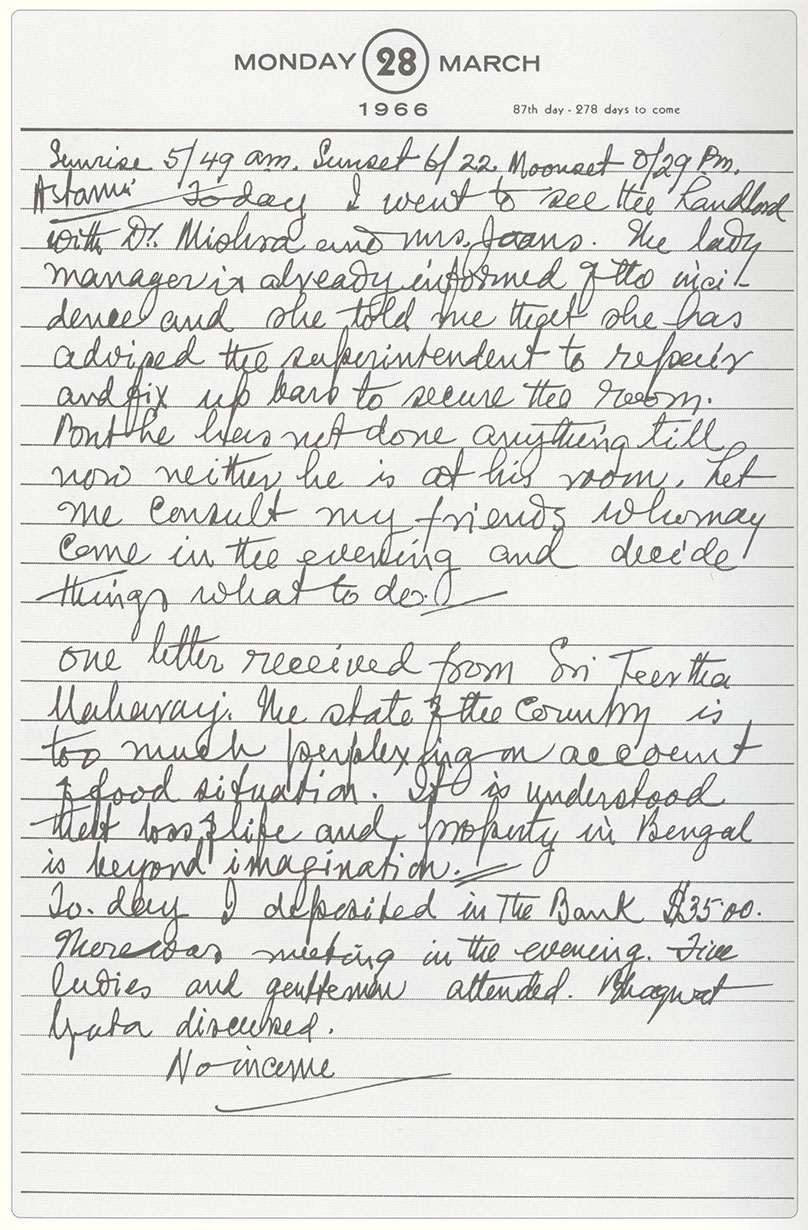 MONDAY 28 MARCH
1966 87th day - 278 days to come
Sunrise 5/49 am. Sunset 6/22. Moonset 0/29 Pm.
Astami Today I went to see the Landlord
with Dr. Mishra and mrs. Joans. The lady
manager is already informed of the inci-
dence and she told me that she has
advised the superintendent to repair
and fix up bars to secure the room.
But he has not done anything till
now neither he is at his room. Let
me consult my friends who may
come in the evening and decide
things what to do.
one letter received from Sri Teertha
Maharaj. The state of the Country is
too much perplexing on account
of food situation. It is understood
that loss of life and property in Bengal
is beyond imagination.
To-day I deposited in The Bank $35.00.
There was meeting in the evening. Five
ladies and gentlemen attended. Bhagwat
Gita discussed.
No income